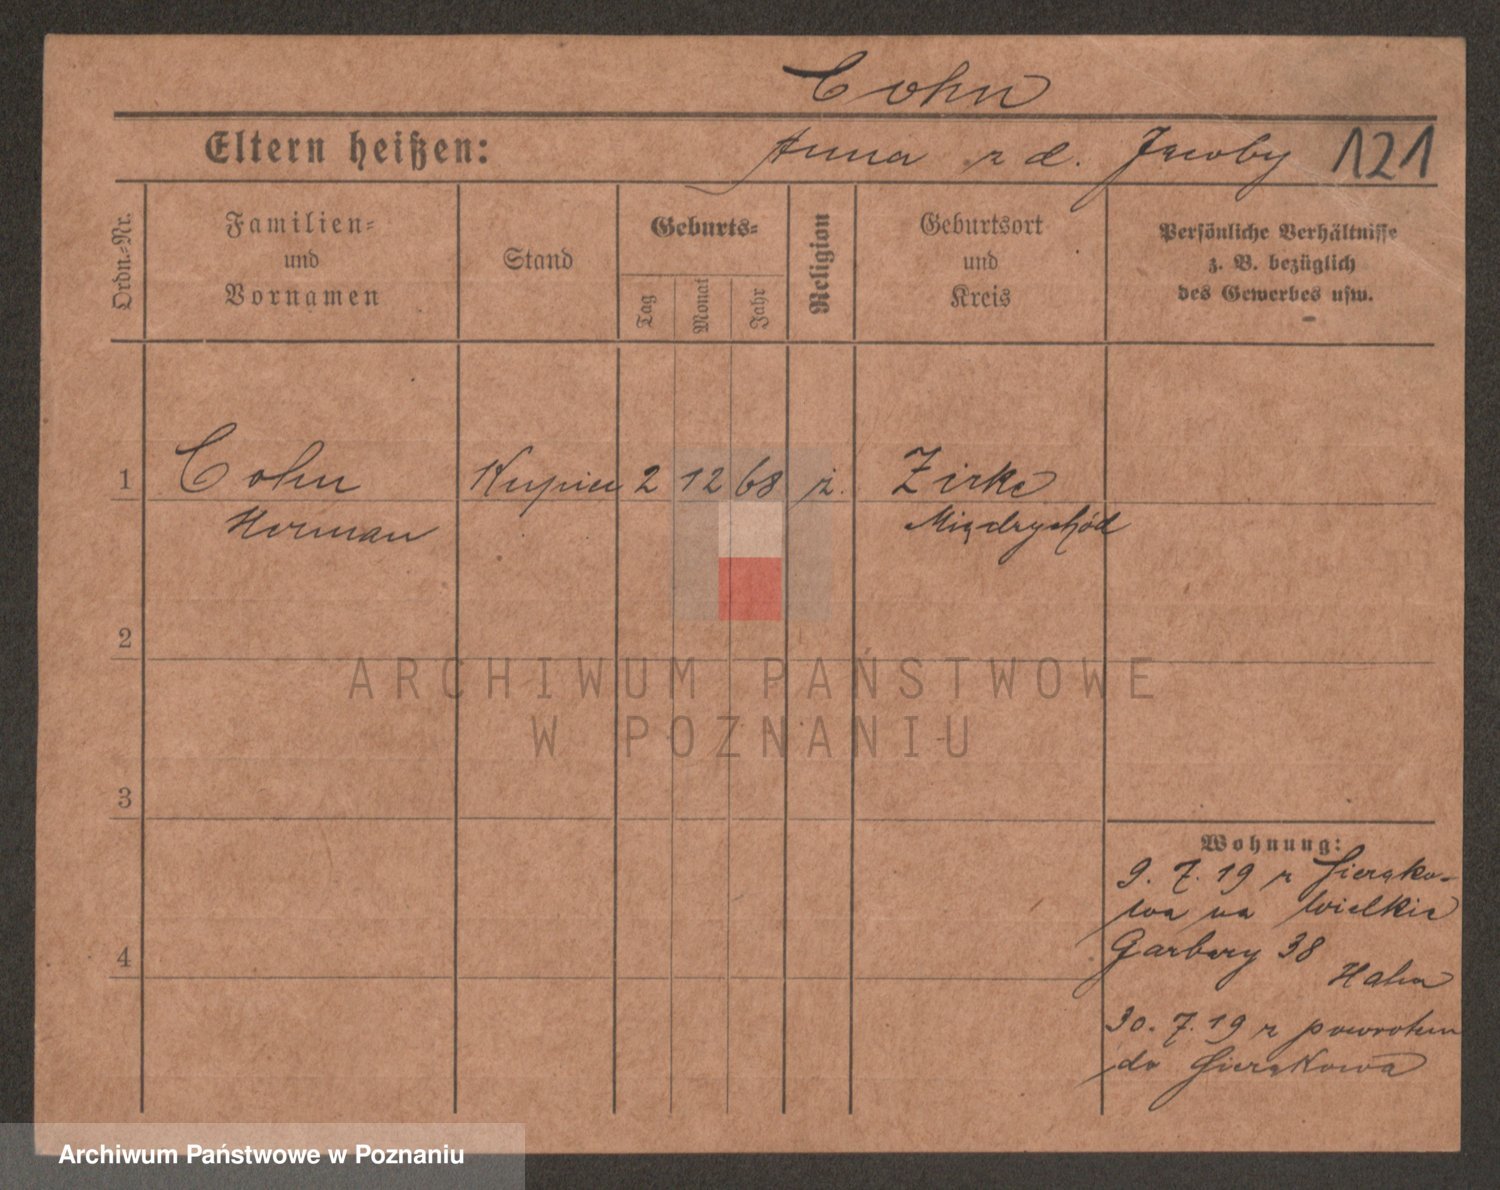 Cohn
Eltern heißen: Anna z d. Jacoby 121
Ordn.-Nr.
Familien-
und
Vornamen
Stand
Geburts-
Tag
Monat
Jahr
Religion
Geburtsort
und
Kreis
Persönliche Verhältnisse
z. B. bezüglich
des Gewerbes usw.
1 Cohn Kupiec 2 12 68 ż. Zirke
Herman Międzychód
2
ARCHIWUM PAŃSTWOWE
W POZNANIU
3
Wohnung:
9. 7. 19 z Sierako-
wa na Wielkie
4 Garbary 38
Hahn
30. 7. 19 z powrotem
do Sierakowa
Archiwum Państwowe w Poznaniu